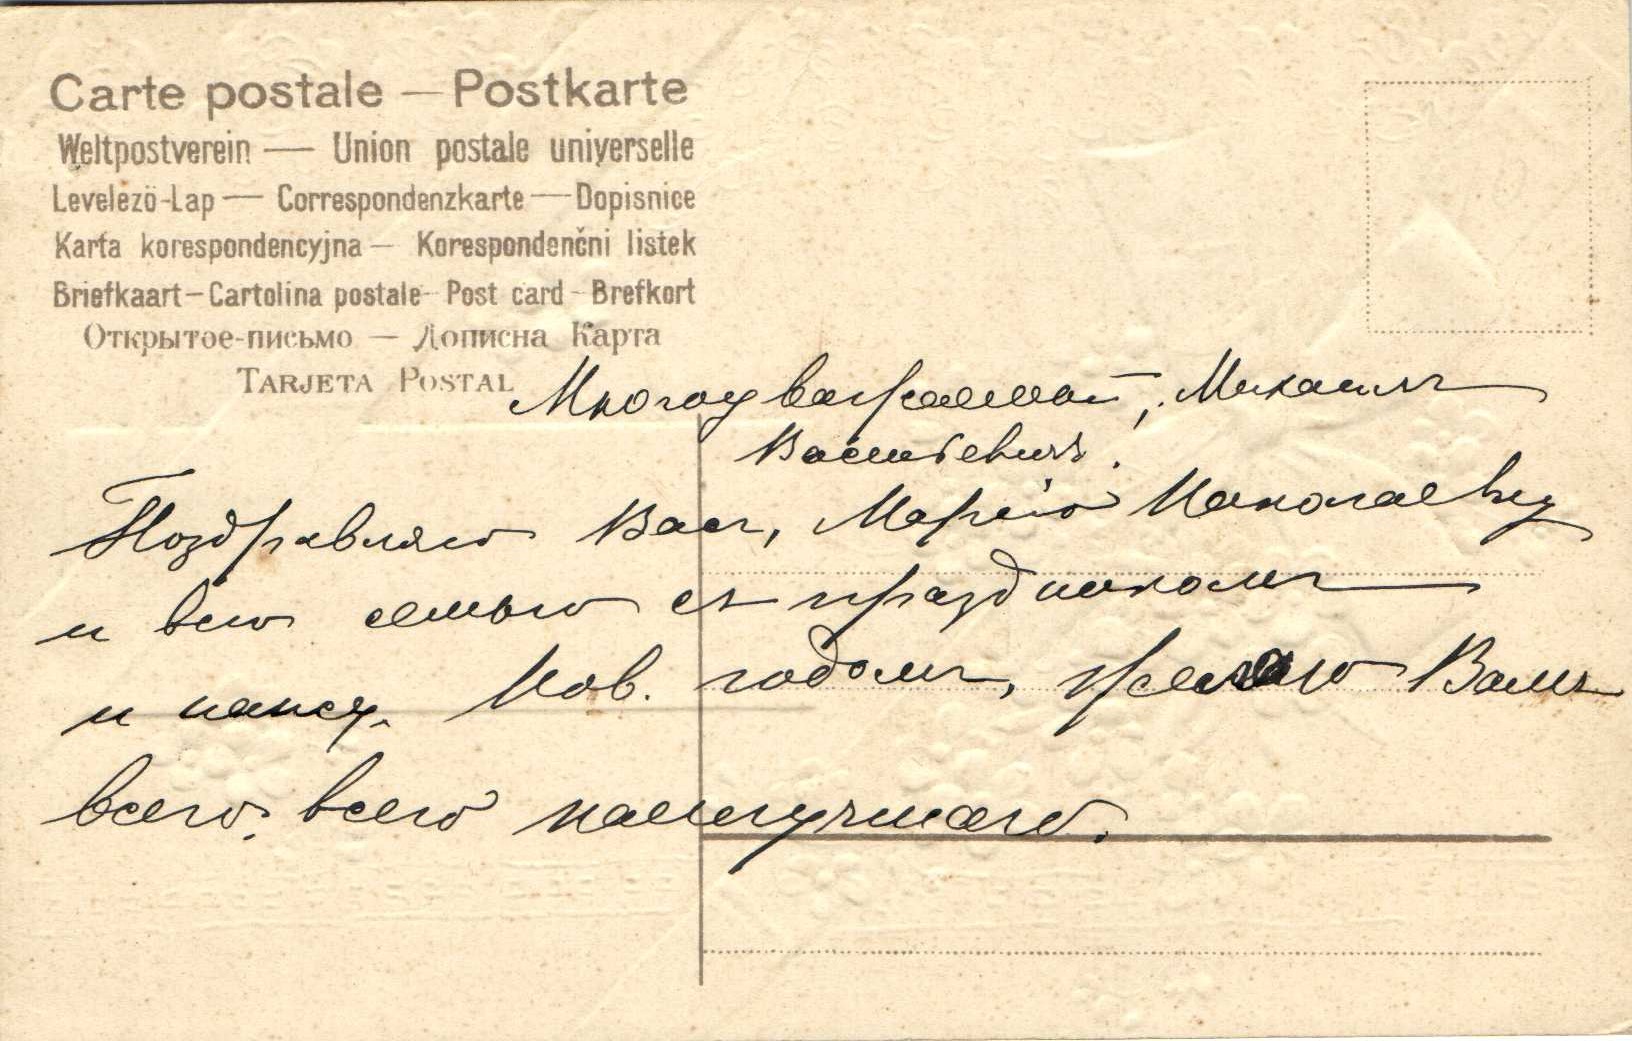 Carte postale — Postkarte
Weltpostverein — Union postale universelle
Levelezö-Lap — Correspondenzkarte — Dopisnice
Karta korespondencyjna — Korespondenčni listek
Briefkaart — Cartolina postale - Post card - Brefkort
Открытое-письмо — Дописна Карта
TARJETA POSTAL
Многоуважаемый, Михаилъ
Васильевичъ!
Поздравляю Васъ, Марію Николаевну
и всю семью съ праздникомъ
и наст. Нов. годомъ, желаю Вамъ
всего, всего наилучшаго.